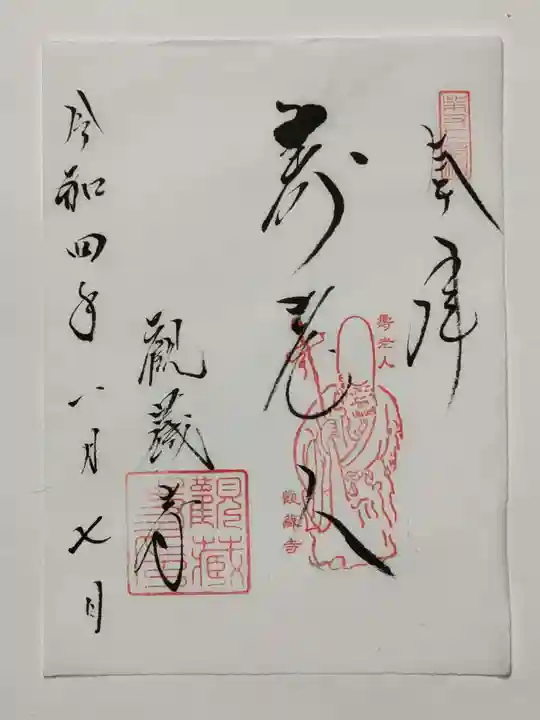 奉拝
寿老人
寿老人
観蔵寺
観蔵寺
令和四年八月七日